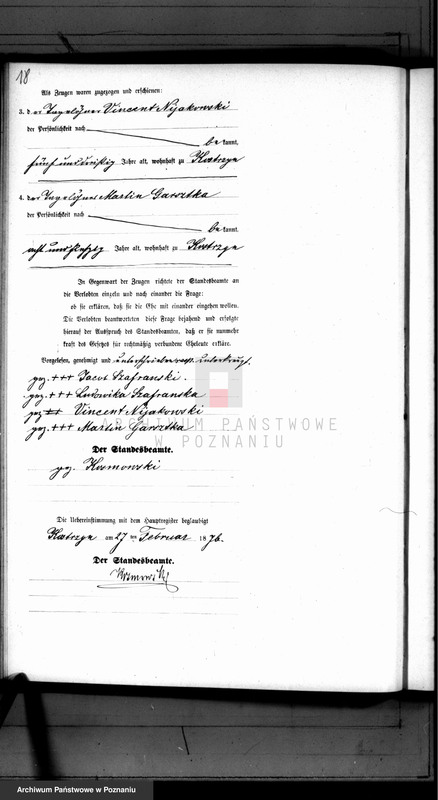 18
Als Zeugen waren zugezogen und erschienen:
3. d er Tagelöhner Vincent Nijakowski
der Persönlichkeit nach
be kannt,
fünf und dreißig Jahre alt, wohnhaft zu Kostrzyn
4. der Tagelöhner Martin Garsztka
der Persönlichkeit nach
be kannt,
acht und Jahre alt, wohnhaft zu Kostrzyn
In Gegenwart der Zeugen richtete der Standesbeamte an
die Verlobten einzeln und nach einander die Frage:
ob sie erklären, daß sie die Ehe mit einander eingehen wollen.
Die Verlobten beantworteten diese Frage bejahend und erfolgte
hierauf der Ausspruch des Standesbeamten, daß er sie nunmehr
kraft des Gesetzes für rechtmäßig verbundene Eheleute erkläre.
Vorgelesen, genehmigt und unterkreuzt.
gez. +++ Jacob Szafranski.
gez. +++ Ludowika Szafranska
gez. +++ Vincent Nijakowski
gez. +++ Martin Garsztka
Der Standesbeamte.
gez.
ARCHIWUM PAŃSTWOWE
W POZNANIU
Die Uebereinstimmung mit dem Hauptregister beglaubigt
Kostrzyn am 27 ten Februar 18 76.
Der Standesbeamte.
Archiwum Państwowe w Poznaniu